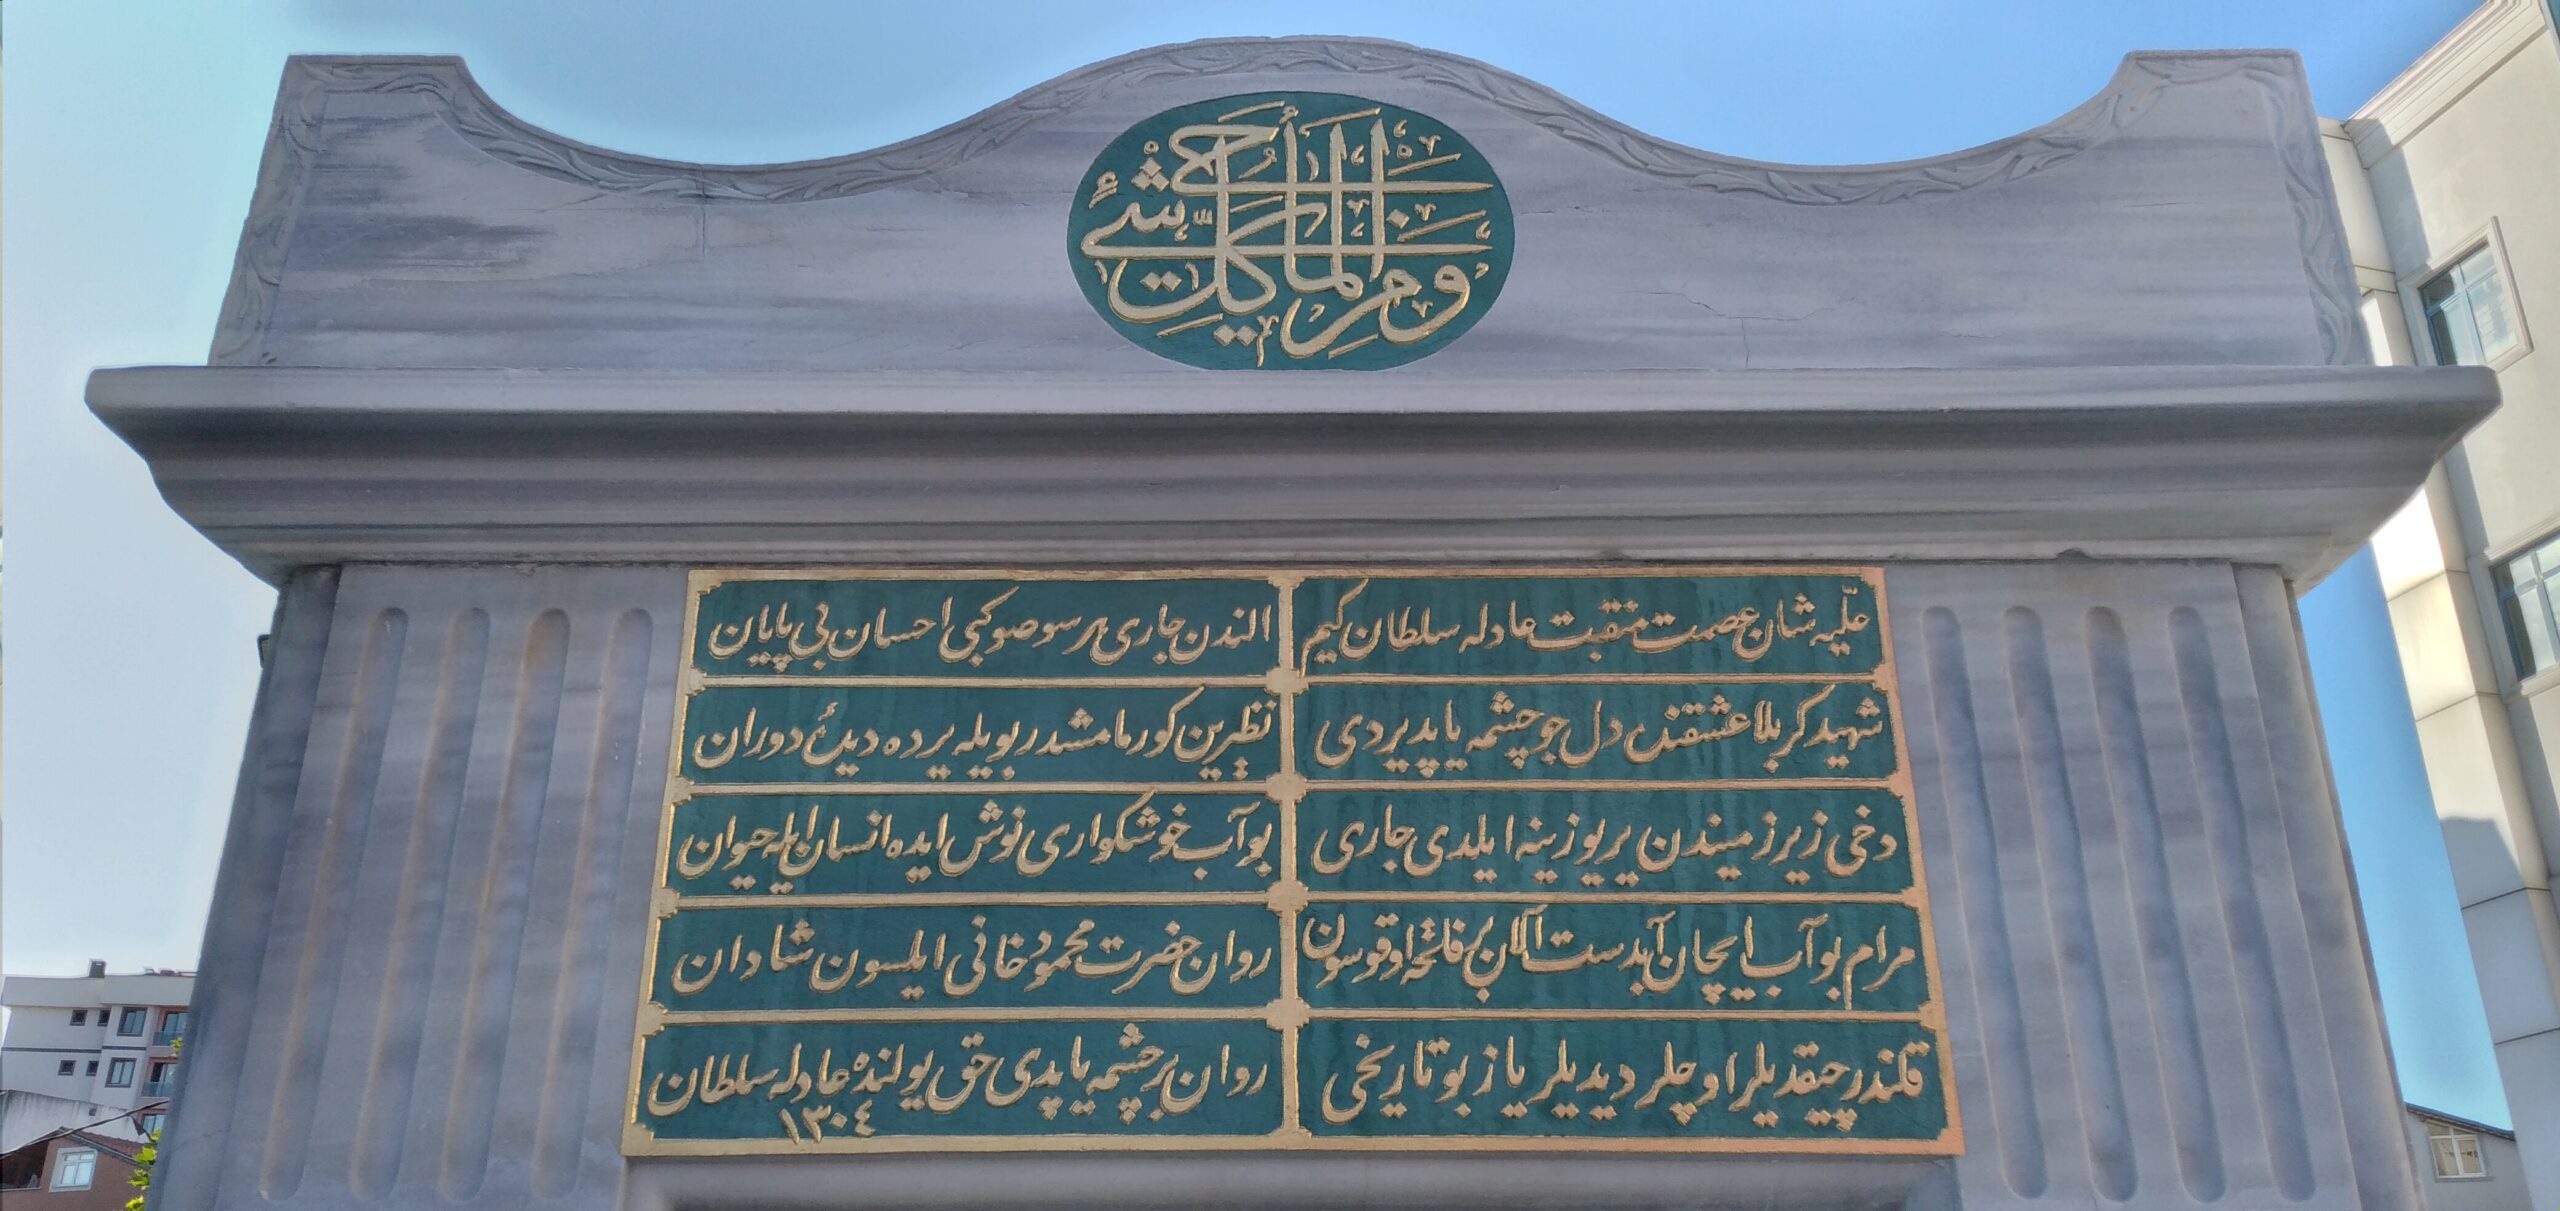 ومن الماء كل شئ حی
علیه شان عصمت منقبت عادله سلطان کیم
الندن جاری هر سو صو کبی احسان بی پایان
شهید کربلا عشقنه دل جو چشمه یاپدیردی
نظیرین کورمامشدر بویله یرده دیدۀ دوران
دخی زیر زمیندن یر یوزینه ایلدی جاری
بو آب خوشکواری نوش ایده انسان ایله حیوان
مرام بو آب ایچان آبدست آلان بر فاتحه اوقوسون
روان حضرت محمود خانی ایلسون شادان
قلندر چیقدیلر اوچلر دیدیلر یاز بو تاریخی
روان بر چشمه یاپدی حق یولنده عادله سلطان
١٣٠٤